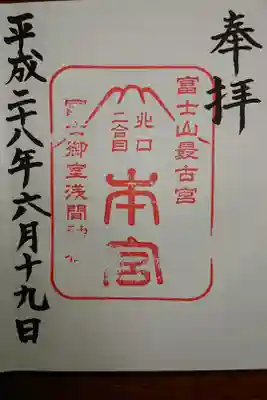 奉拝
富士山最古宮
北口
二合目
本宮
御室浅間
平成二十八年六月十九日